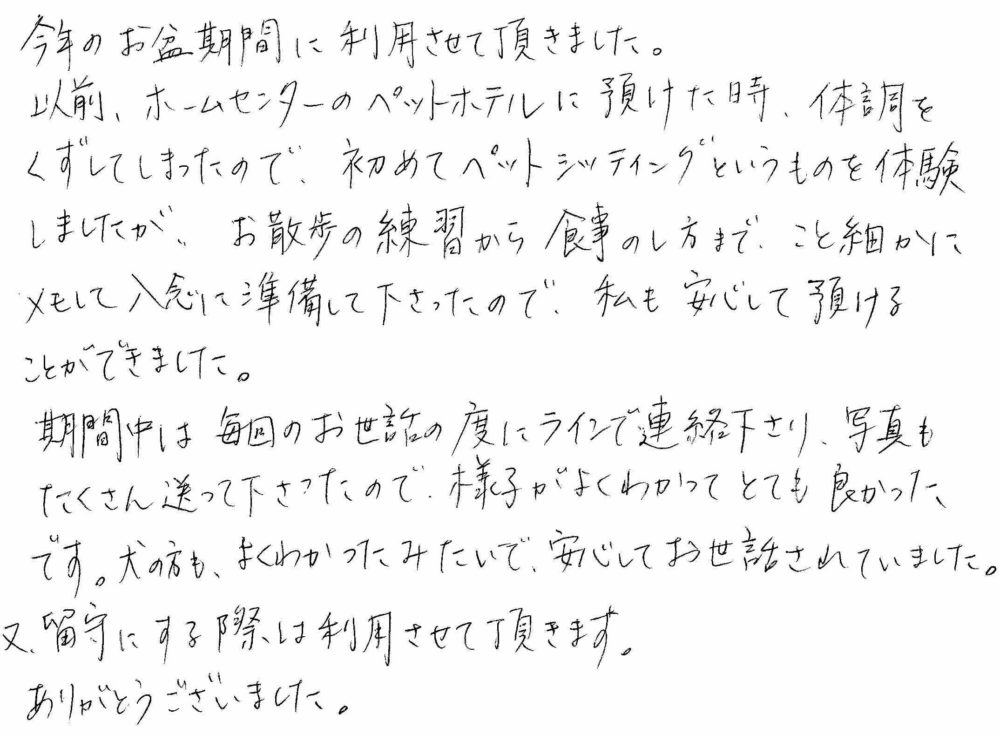 今年のお盆期間に利用させて頂きました。
以前、ホームセンターのペットホテルに預けた時、体調を
くずしてしまったので、初めてペットシッティングというものを体験
しましたが、お散歩の練習から食事のし方まで、こと細かに
メモして入念に準備して下さったので、私も安心して預ける
ことができました。
期間中は毎回のお世話の度にラインで連絡下さり、写真も
たくさん送って下さったので、様子がよくわかってとても良かった
です。犬の方も、よくわかったみたいで、安心してお世話されていました。
又、留守にする際は利用させて頂きます。
ありがとうございました。